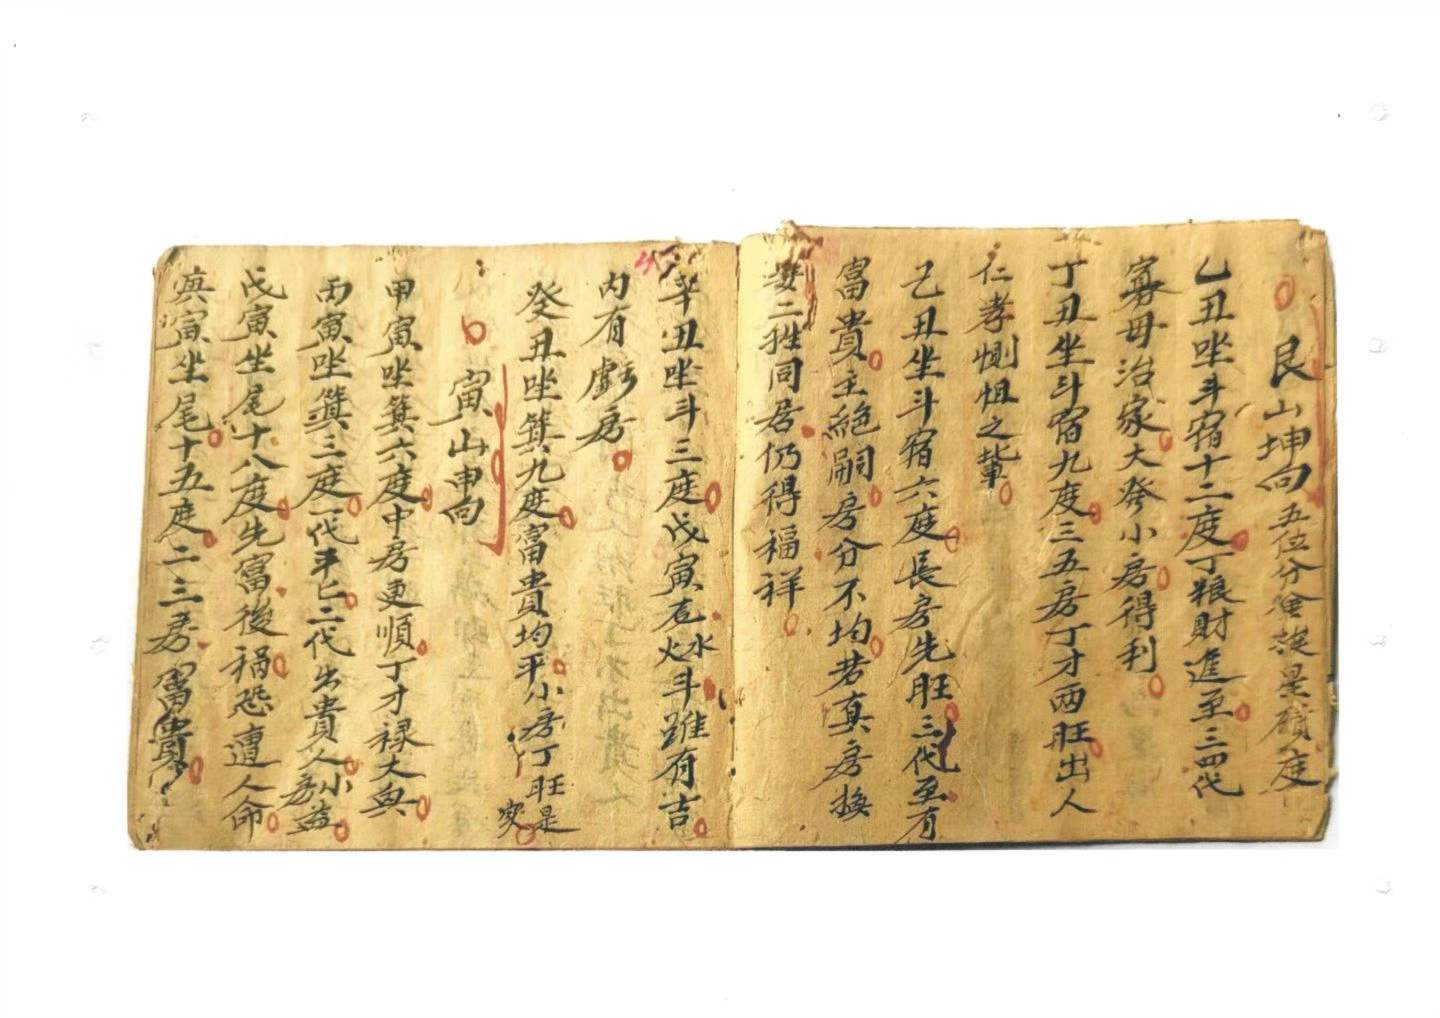 艮山坤向五位分金是度
乙丑坐斗宿十二度丁粮財進至三四代
寡母治家大發小房得利
丁丑坐斗宿九度三五房丁才兩旺出人
仁孝惻怛之輩
己丑坐斗宿六度長房先旺三代至有
富貴主絕嗣房分不均若真房換
妻二姓同居仍得福祥
辛丑坐斗三度戊寅斗雖有吉
内有虧房
癸丑坐箕九度富貴均平小房丁旺是
寅山申向
甲寅坐箕六度中房更順丁才禄大興
丙寅坐箕三度一代平二代出貴人小房益
戊寅坐尾十八度先富後禍恐遭人命
庚寅坐尾十五度二三房富貴